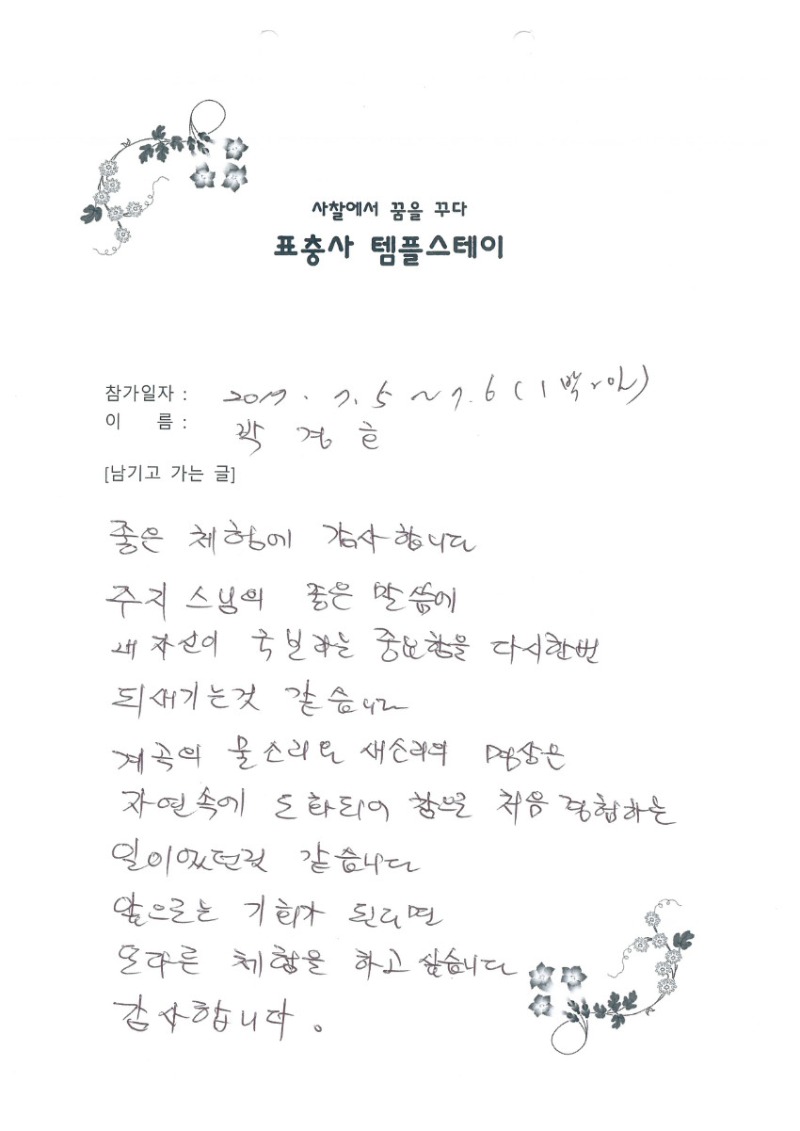 사찰에서 꿈을 꾸다
표충사 템플스테이
참가일자 : 2017. 7. 5 ~ 7. 6 ( 1박 2일)
이 름 : 곽 경
[남기고 가는 글]
좋은 체험에 감사합니다
주지 스님의 좋은 말씀에
내 자신이 국보라는 중요함을 다시한번
되새기는것 같습니다
계곡의 물소리와 새소리의 명상은
자연속에 도화되어 참으로 처음 경험하는
일이었던것 같습니다
앞으로는 기회가 된다면
또다른 체험을 하고 싶습니다
감사합니다.